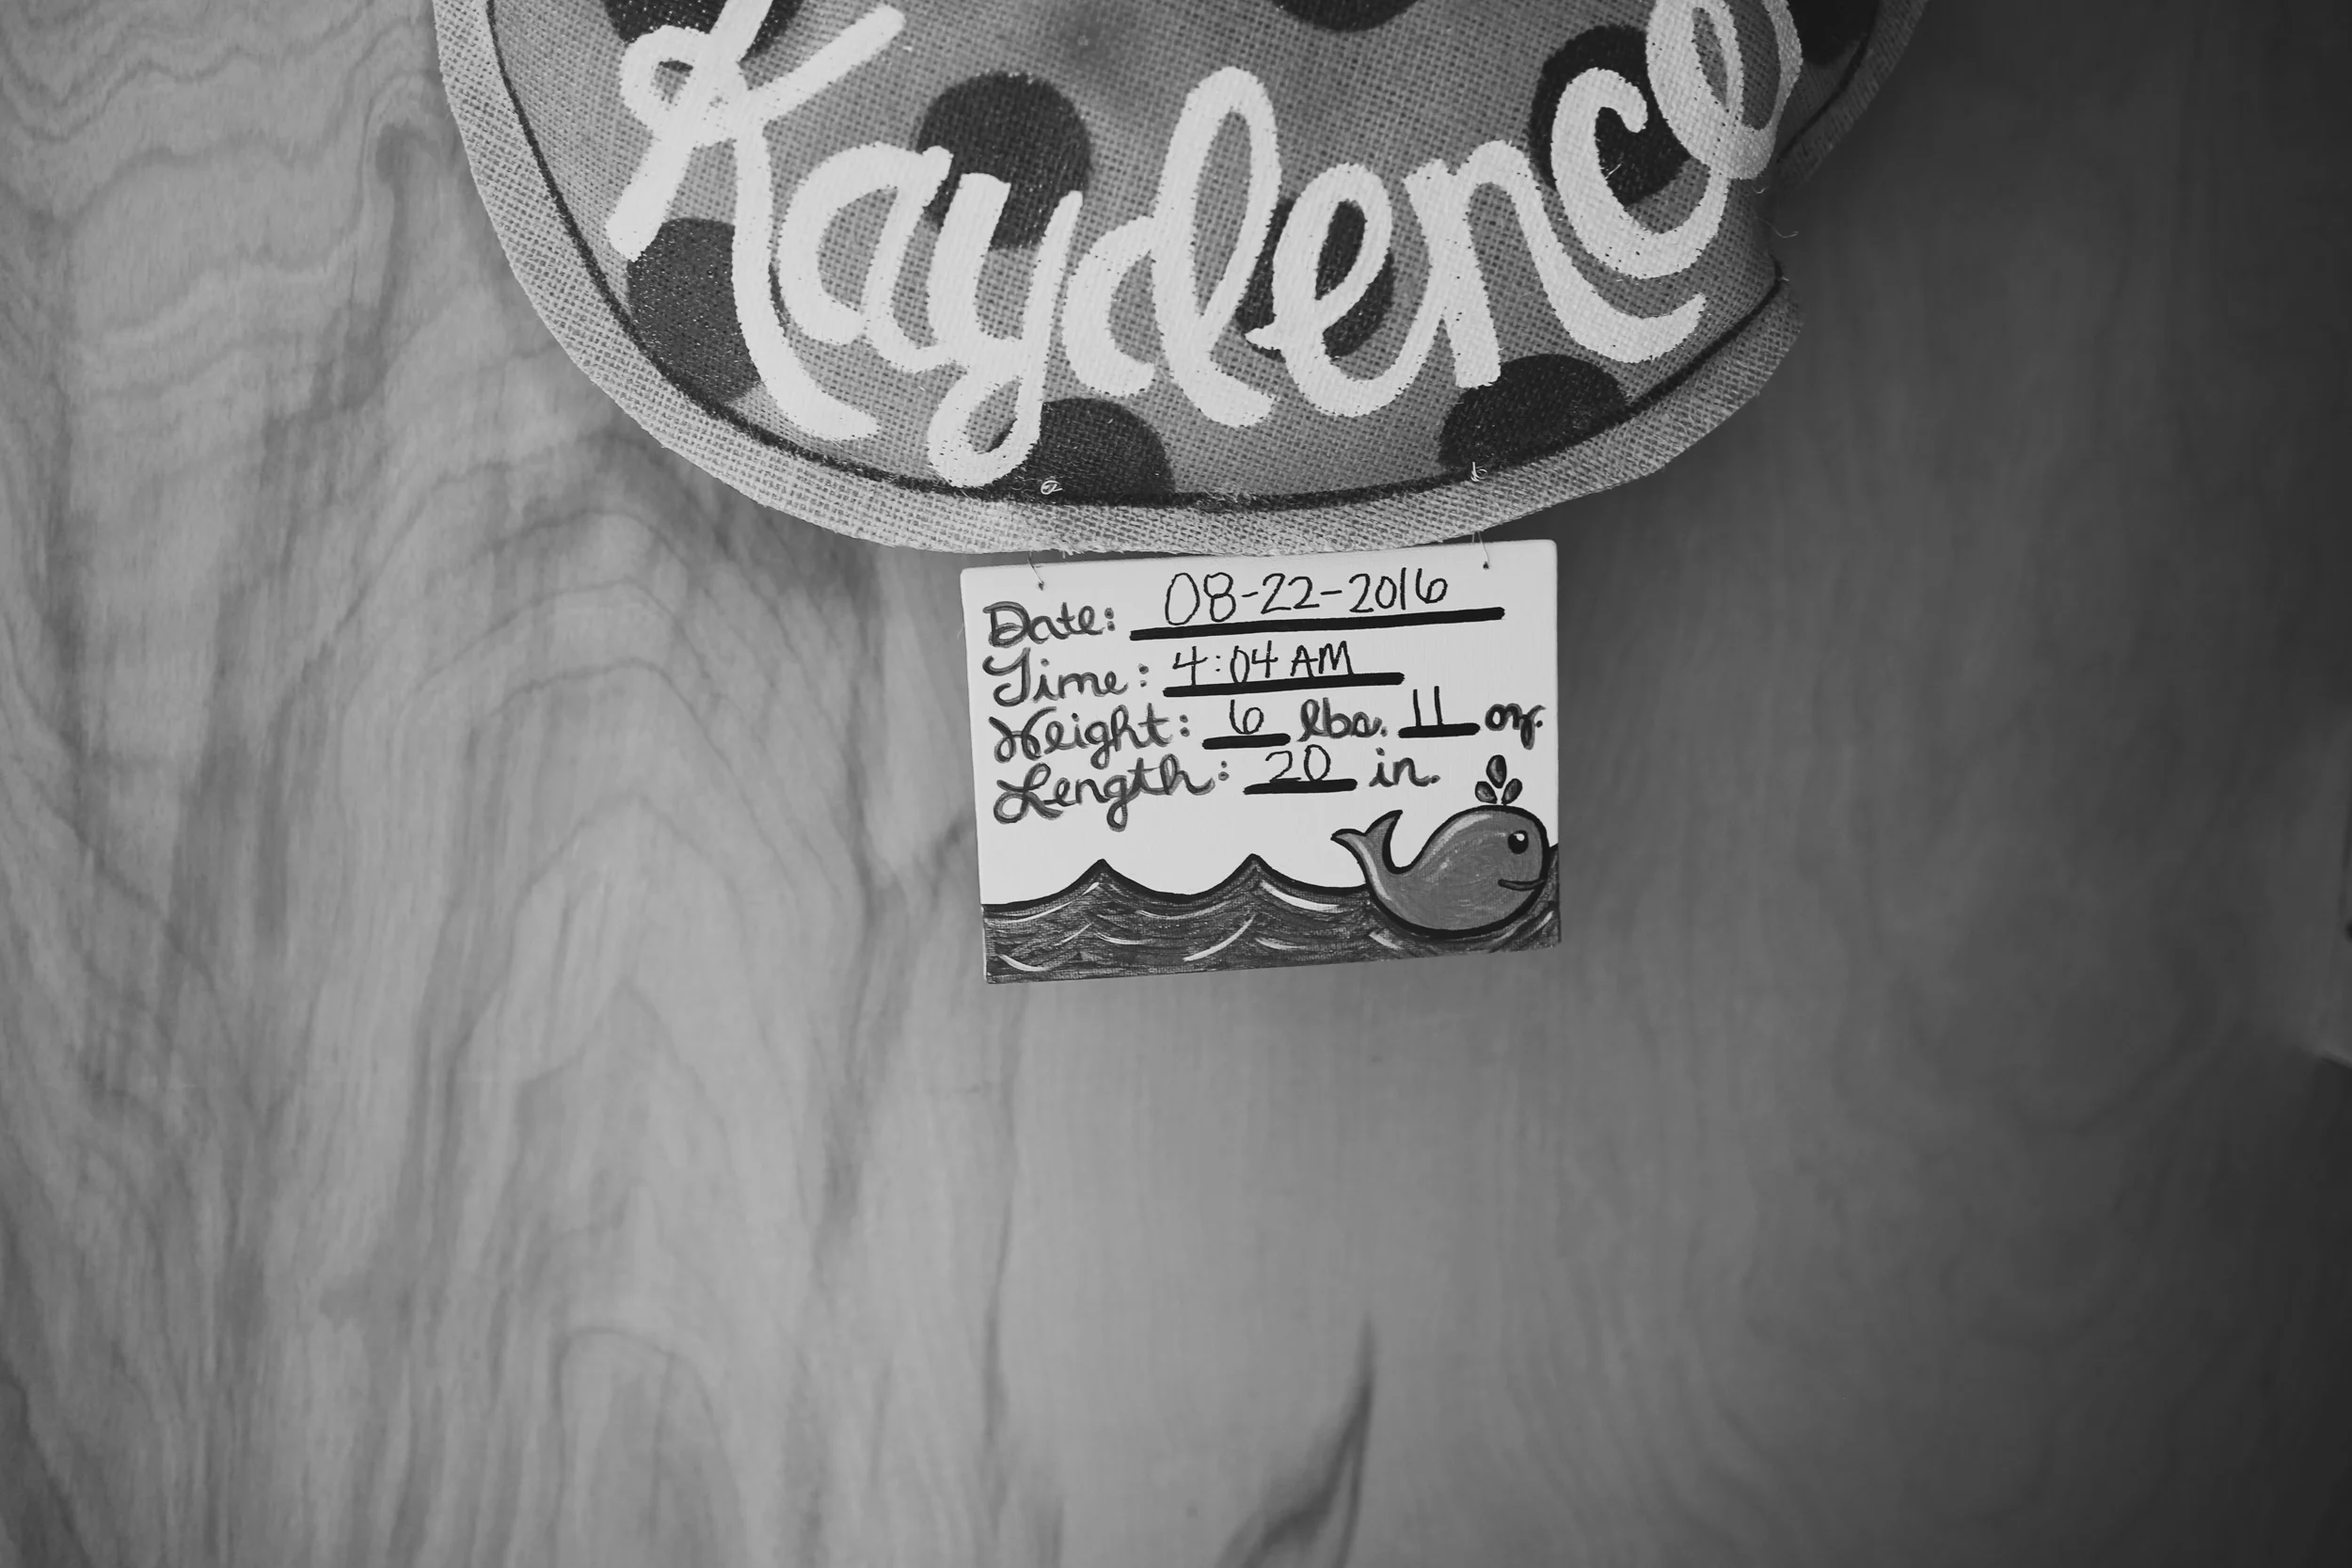 Kaydence
Date: 08-22-2016
Time: 4:04 AM
Weight: 6 lbs. 11 oz.
Length: 20 in.